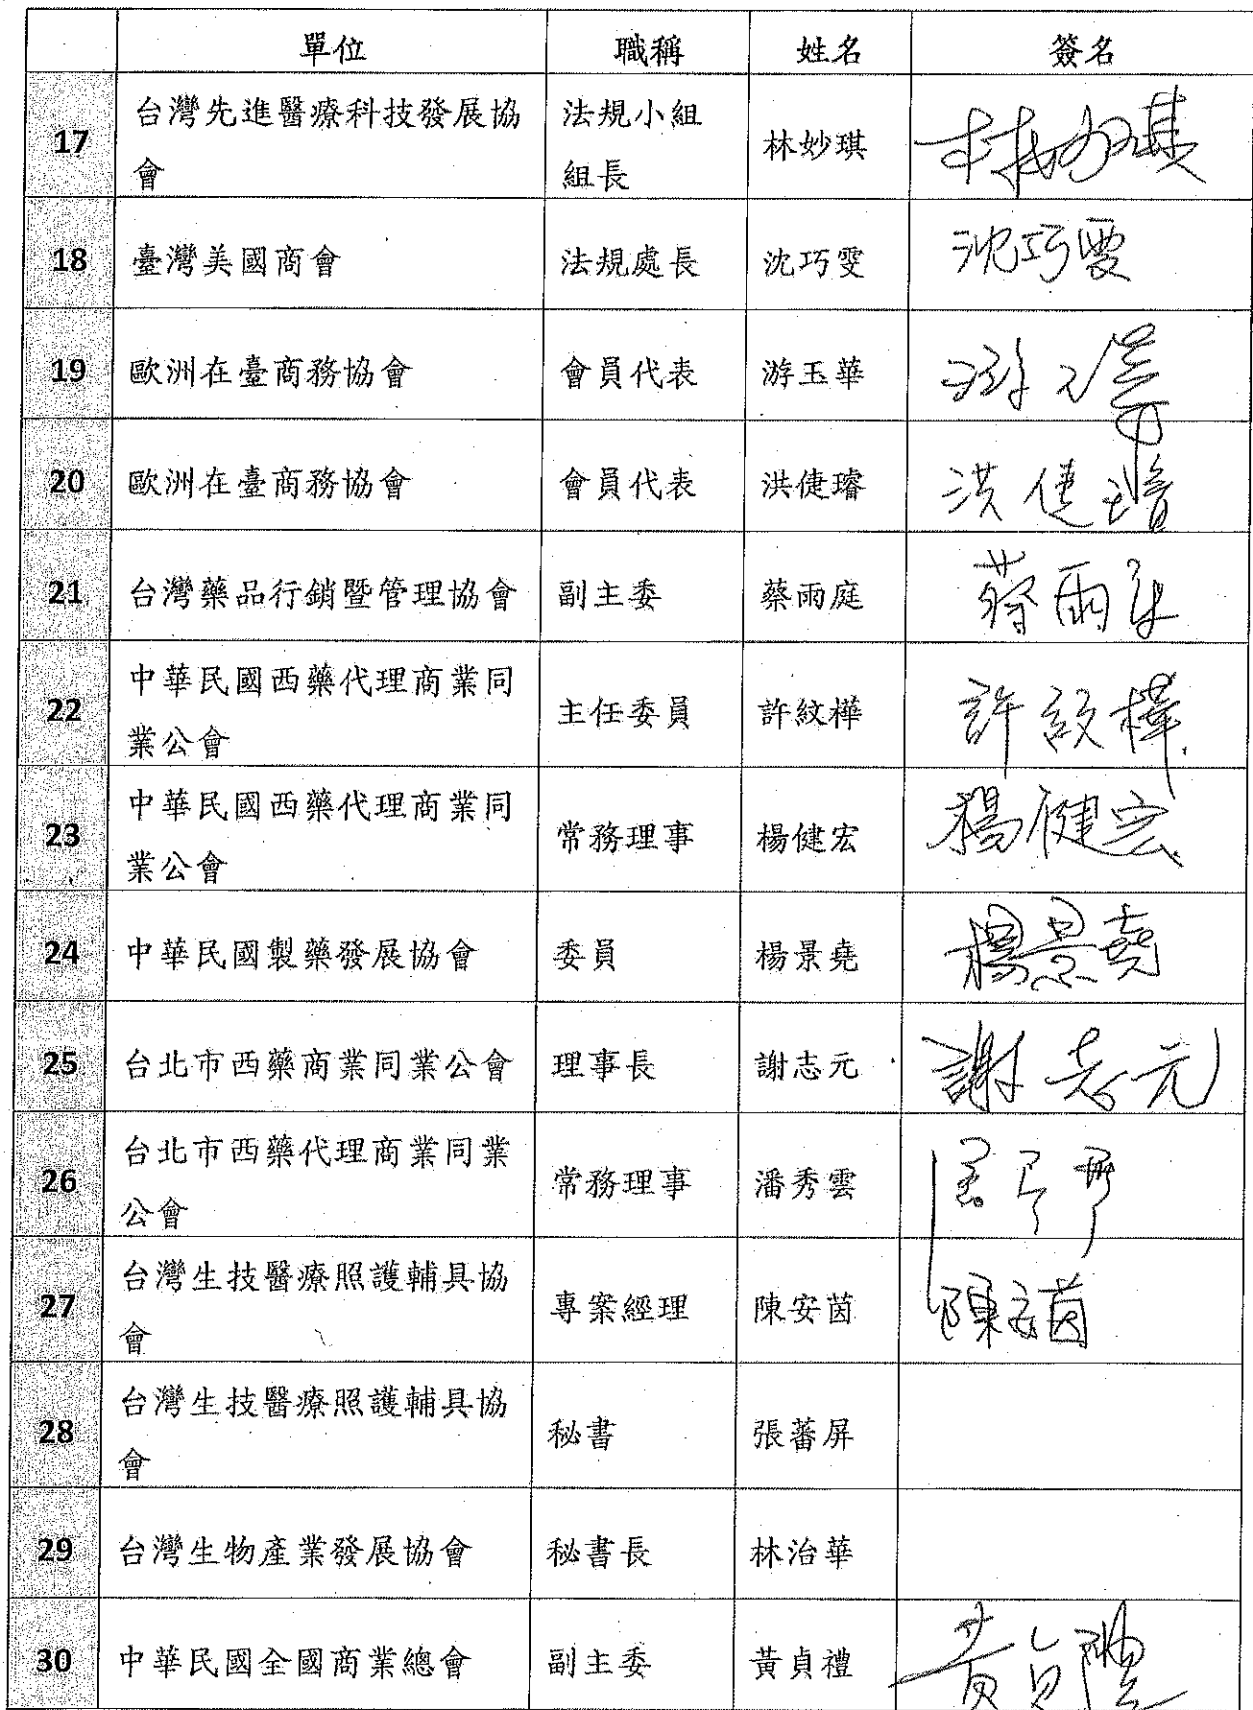 單位 職稱 姓名 簽名
17 台灣先進醫療科技發展協 法規小組 林妙琪 林妙琪
會 組長
18 臺灣美國商會 法規處長 沈巧雯 沈巧雯
19 歐洲在臺商務協會 會員代表 游玉華 游玉華
20 歐洲在臺商務協會 會員代表 洪倢璿 洪倢璿
21 台灣藥品行銷暨管理協會 副主委 蔡雨庭 蔡雨庭
22 中華民國西藥代理商業同 主任委員 許紋樺 許紋樺
業公會
23 中華民國西藥代理商業同 常務理事 楊健宏 楊健宏
業公會
24 中華民國製藥發展協會 委員 楊景堯 楊景堯
25 台北市西藥商業同業公會 理事長 謝志元 謝志元
26 台北市西藥代理商業同業 常務理事 潘秀雲
公會
27 台灣生技醫療照護輔具協 專案經理 陳安茵 陳安茵
會
28 台灣生技醫療照護輔具協 秘書 張蕃屏
會
29 台灣生物產業發展協會 秘書長 林治華
30 中華民國全國商業總會 副主委 黃貞禮 黃貞禮